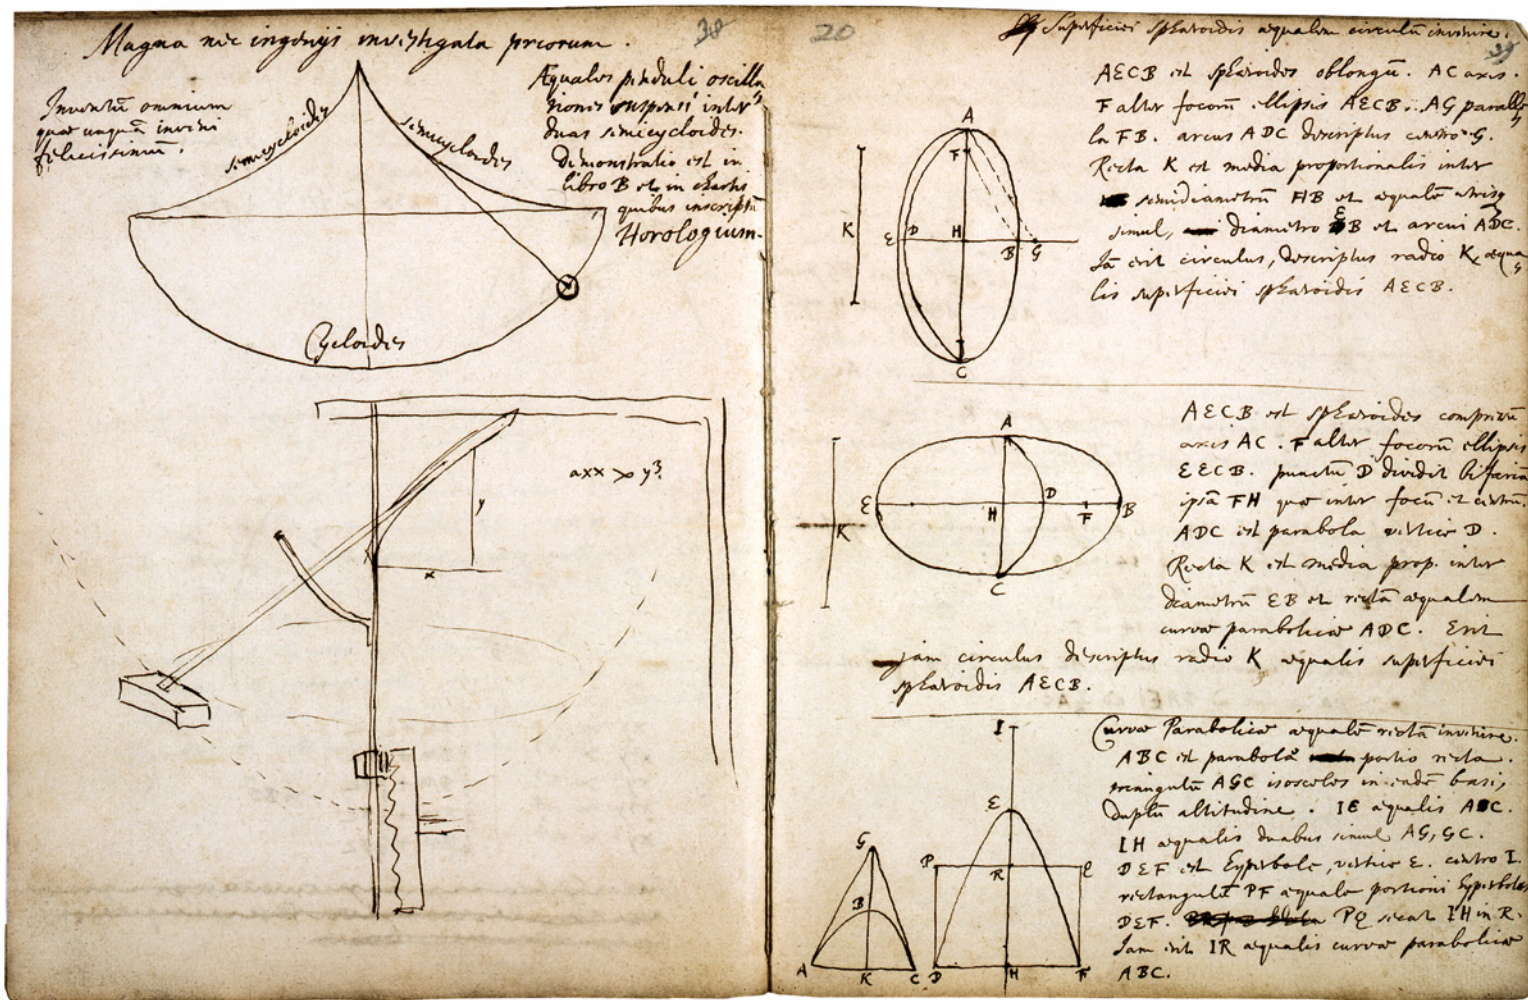 Magna nec ingenijs investigata priorum.
38
Inventū omnium
quae unquā inveni
felicissimū.
semicycloides
semicycloides
Æquales penduli oscilla
tiones suspensi inter
duas semicycloides.
Demonstratio est in
libro B et in chartis
quibus inscriptū
Horologium.
Cycloides
axx ∝ y3
y
x
20
Superficiei sphaeroidis aequalem circulū invenire.
39
AECB est sphaeroides oblongū. AC axis.
F alter focorū ellipsis AECB. AG paralle
la FB. arcus ADC descriptus centro G.
Recta K est media proportionalis inter
semidiametrū HB et aequalē utrisq
simul, diametro EB et arcui ADC.
Jā erit circulus, descriptus radio K, aequa
lis superficiei sphaeroidis AECB.
A
F
K
E D H B G
C
AECB est sphaeroides compressū
axis AC. F alter focorū ellipsis
EECB. punctū D dividit bifariā
ipsā FH quae inter focū et centrū.
ADC est parabola vertice D.
Recta K est media prop. inter
diametrū EB et rectā aequalem
curvae parabolicae ADC. Erit
jam circulus descriptus radio K aequalis superficiei
sphaeroidis AECB.
A
E H D F B
K
C
Curvae Parabolicae aequalē rectā invenire.
ABC est parabolae portio recta.
triangulū AGC isosceles in eadē basi,
duplā altitudine. IE aequalis AC.
IH aequalis duabus simul AG, GC.
DEF est Hyperbole, vertice E. centro I.
rectangulū PF aequale portioni hyperbolae
DEF. PQ secat IH in R.
Jam erit IR aequalis curvae parabolicae
ABC.
I
E
G
P R Q
B
A K C D H F